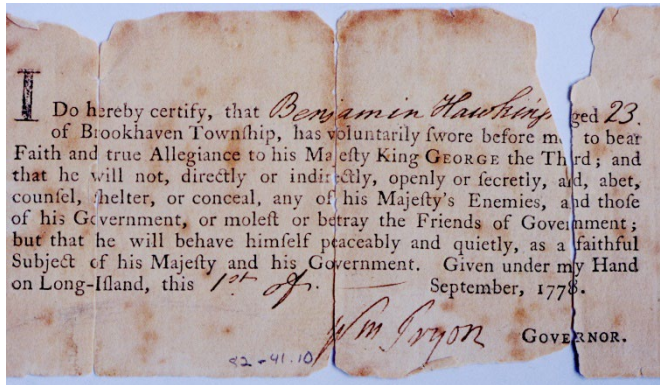 I Do hereby certify, that Benjamin Hawkins aged 23.
of Brookhaven Townſhip, has voluntarily ſwore before me to bear
Faith and true Allegiance to his Majeſty King GEORGE the Third; and
that he will not, directly or indirectly, openly or ſecretly, aid, abet,
counſel, ſhelter, or conceal, any of his Majeſty's Enemies, and thoſe
of his Government, or moleſt or betray the Friends of Government;
but that he will behave himſelf peaceably and quietly, as a faithful
Subject of his Majeſty and his Government. Given under my Hand
on Long-Iſland, this 1st of September, 1778.
Wm Tryon GOVERNOR.
82-41.10